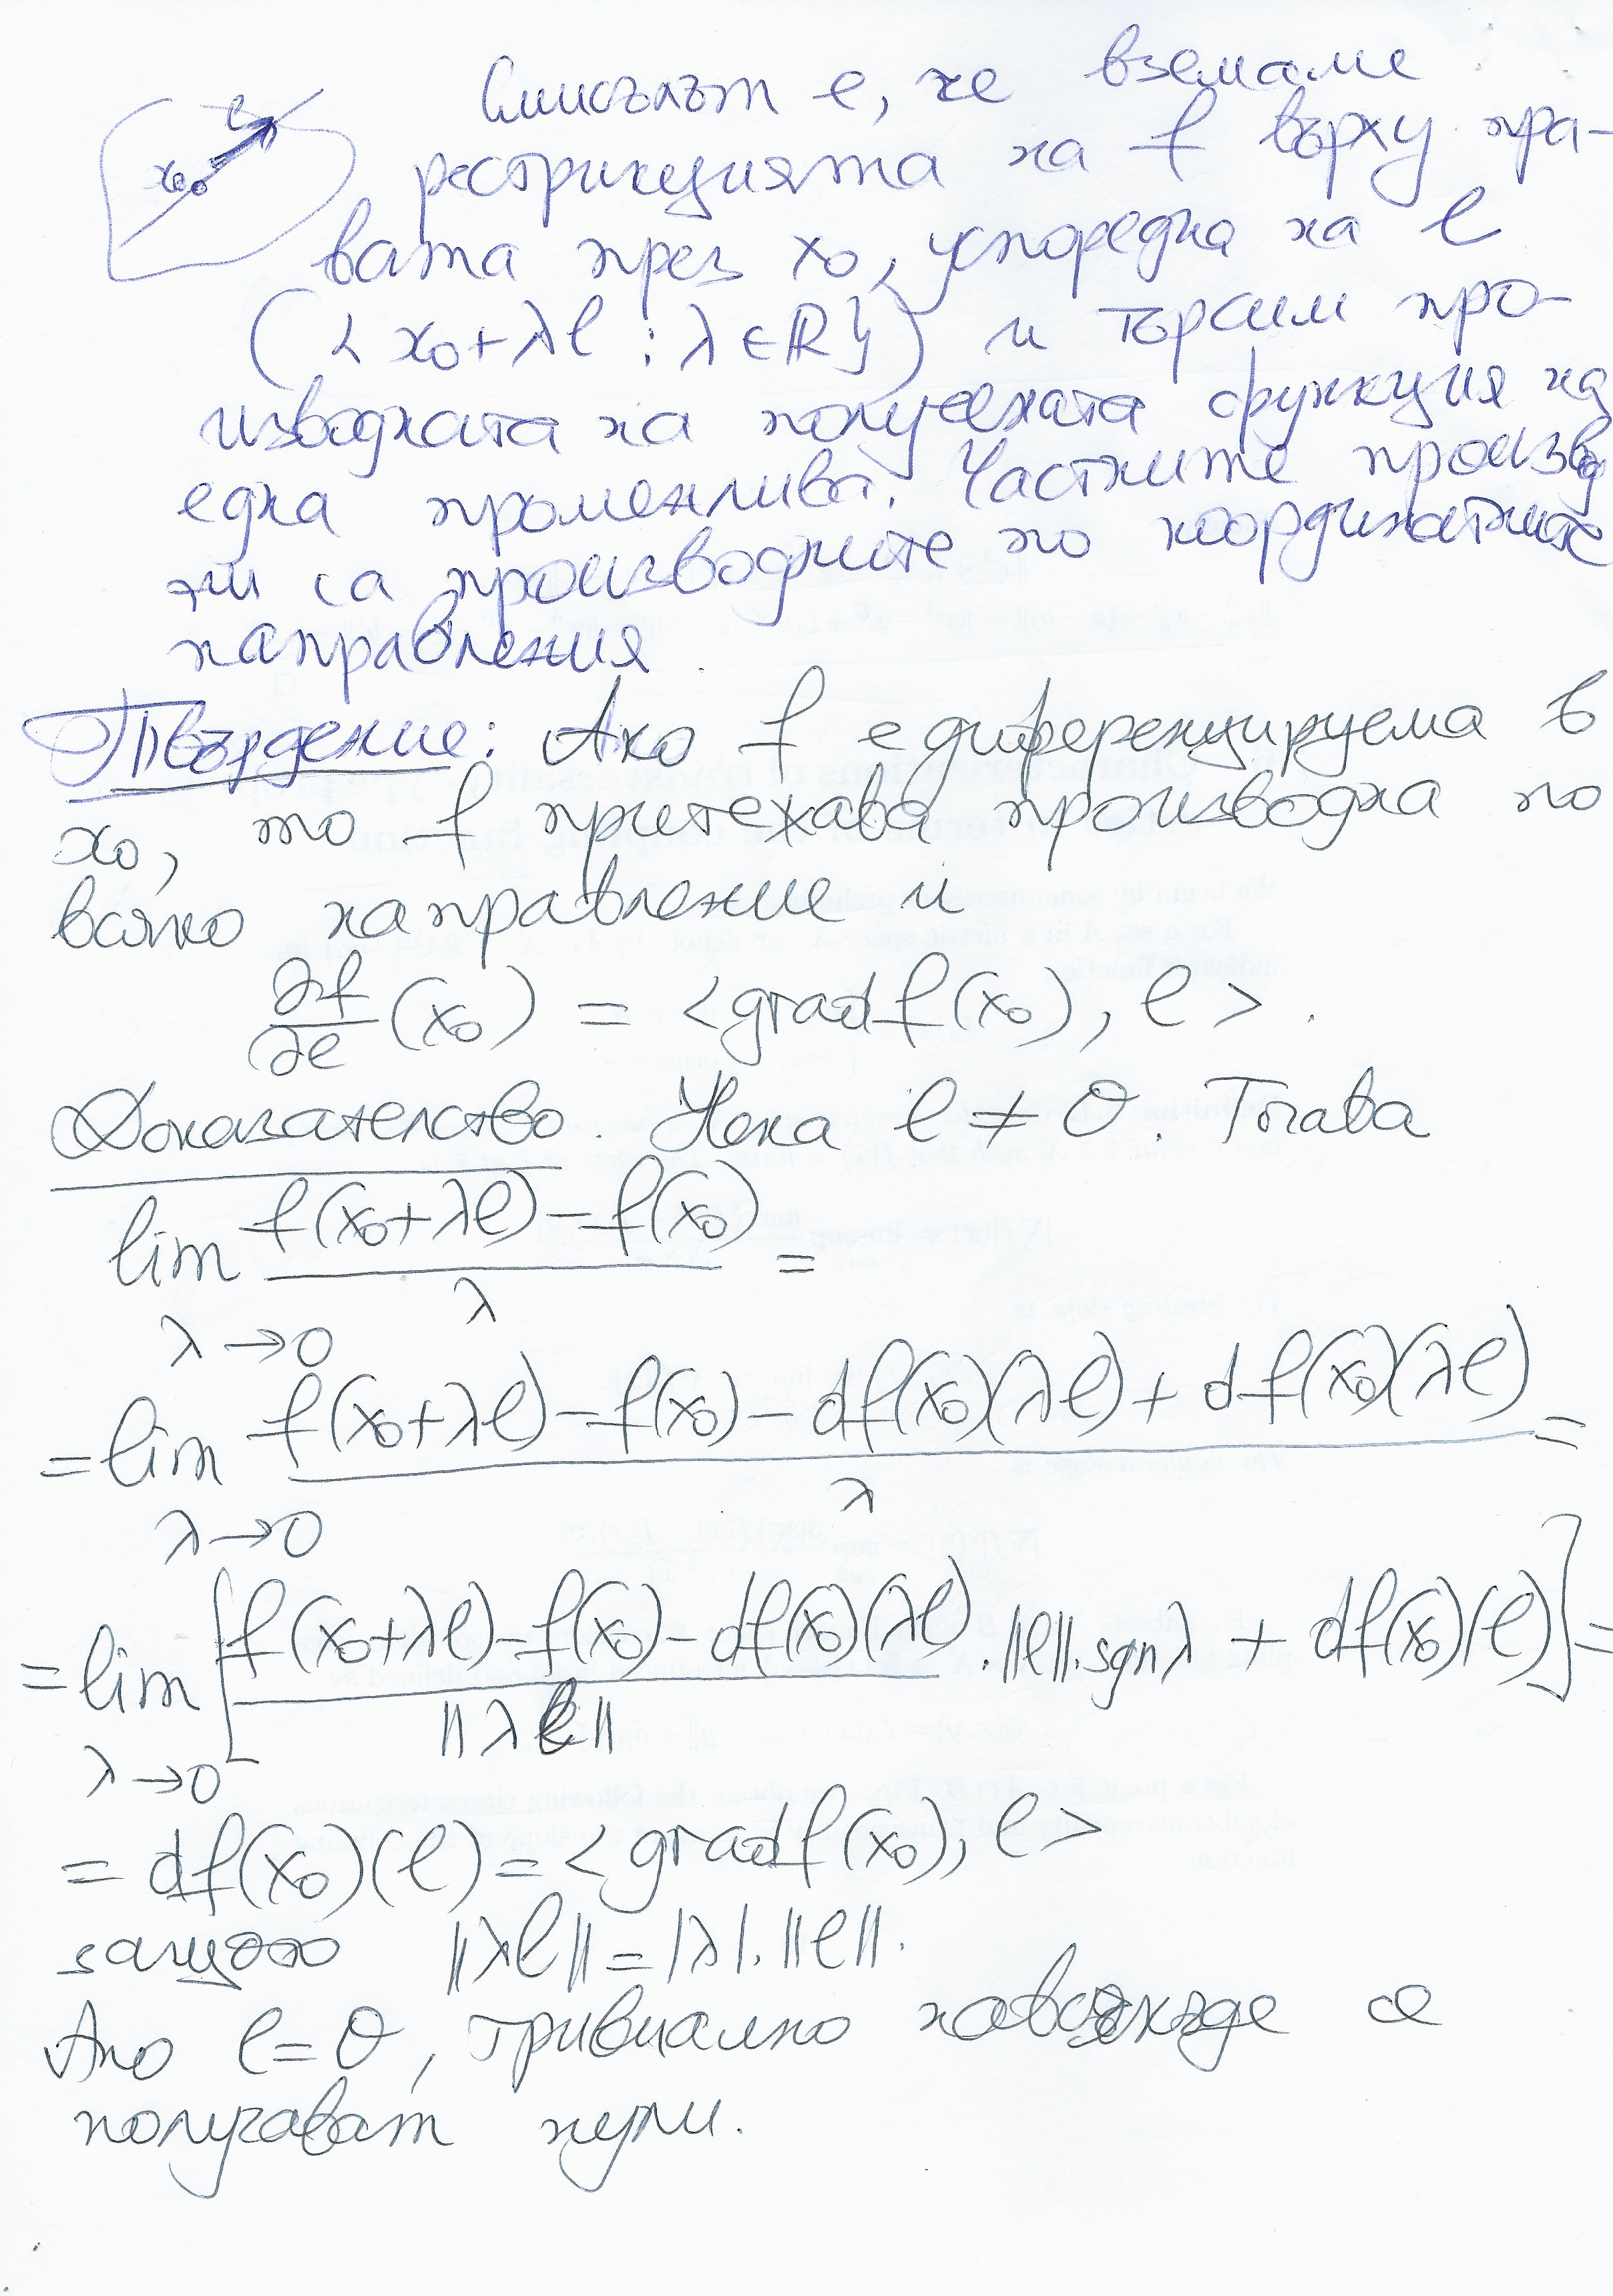 Смисълът е, че вземаме
l
x₀
рестрикцията на f върху пра-
вата през x₀, успоредна на l
({x₀+λl : λ∈ℝ}) и търсим про-
изводната на получената функция на
една променлива. Частните произво
дни са производните по координатните
направления.
Твърдение: Ако f е диференцируема в
x₀, то f притежава производна по
всяко направление и
∂f/∂l (x₀) = <grad f(x₀), l>.
Доказателство. Нека l ≠ 0. Тогава
lim_{λ→0} (f(x₀+λl) − f(x₀))/λ =
= lim_{λ→0} (f(x₀+λl) − f(x₀) − df(x₀)(λl) + df(x₀)(λl))/λ =
= lim_{λ→0} [(f(x₀+λl) − f(x₀) − df(x₀)(λl))/||λl|| . ||l||. sgn λ + df(x₀)(l)] =
= df(x₀)(l) = <grad f(x₀), l>
защото ||λl|| = |λ|.||l||.
Ако l = 0, тривиално навсякъде се
получават нули.